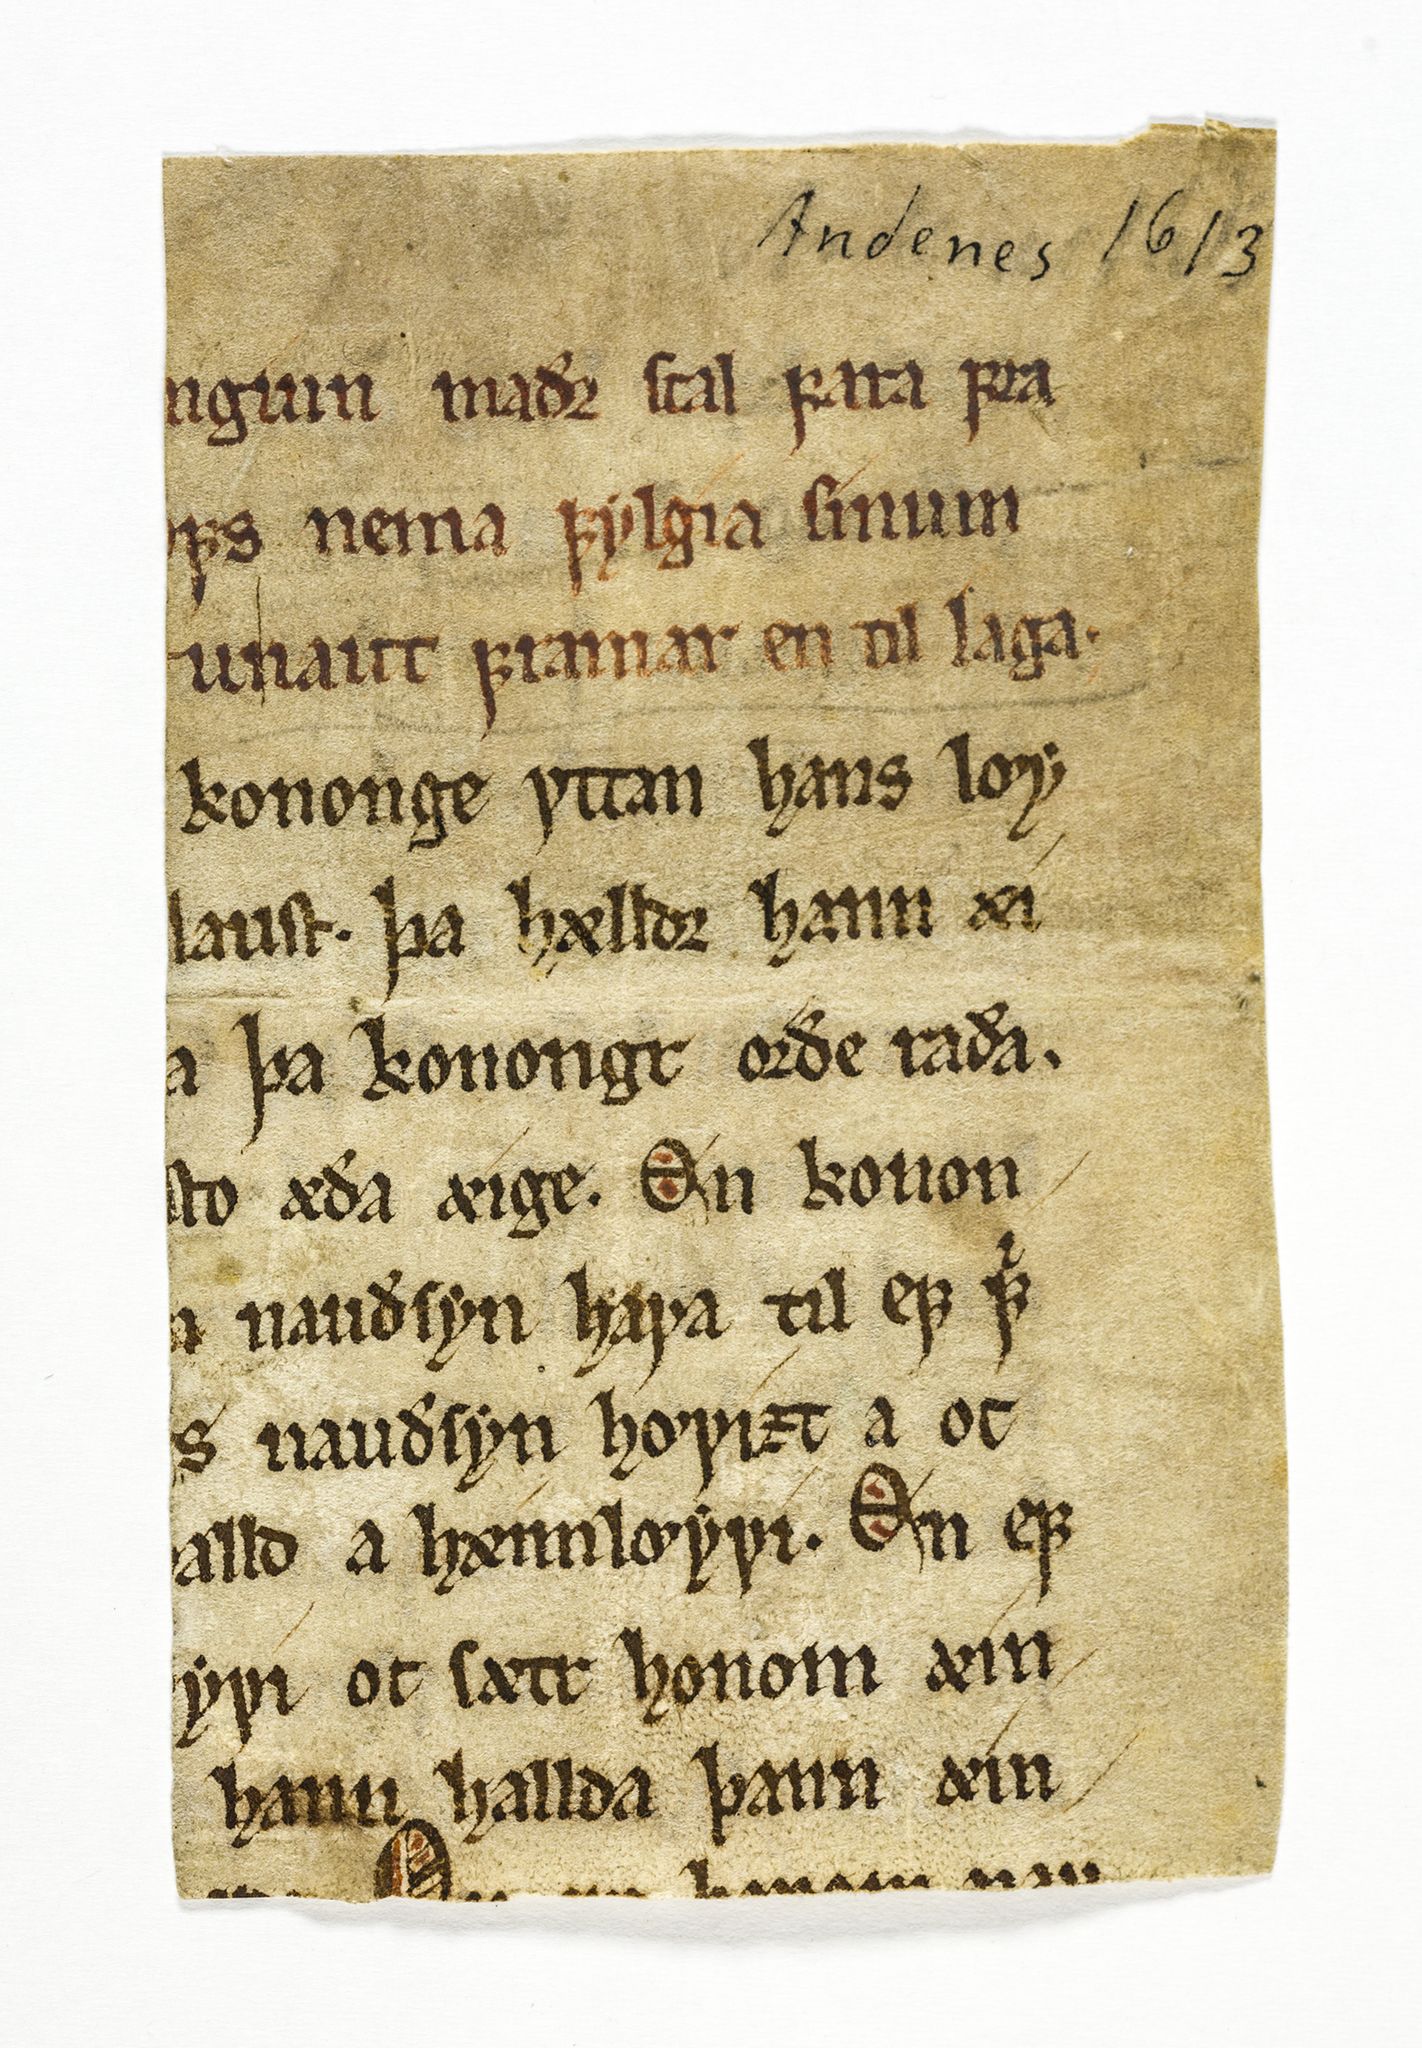 Andenes 1613
ngum maðꝛ scal ꝼara ꝼra
ꝼs nema ꝼylgia sinum
unaut ꝼramar en til laga.
kononge yttan hans loy
laust. þa hælldꝛ hann æi
a þa konongr orðe raða.
sto æða æige. En konon
nauðsyn haꝩa til eꝼ ꝼͥ
s nauðsyn hoꝩizt a oc
alld a hæimloyꝩi. En eꝼ
yꝩi oc sætr honom æin
hann hallda þann æin